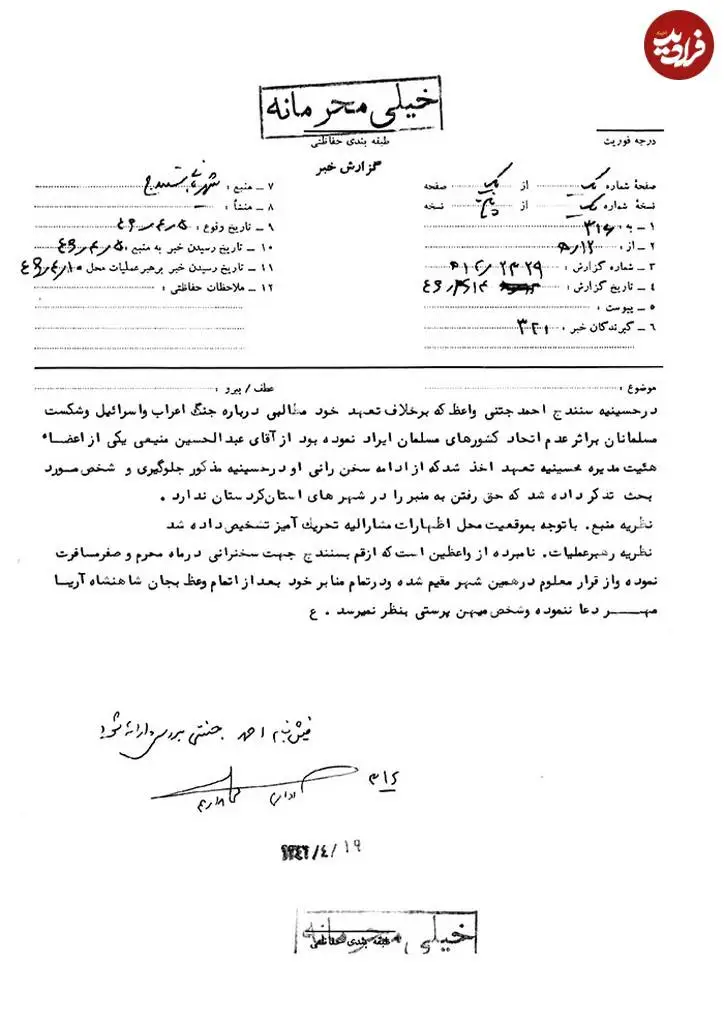 فرادید
خیلی محرمانه
طبقه بندی حفاظتی
درجه فوریت
گزارش خبر
صفحهٔ شماره یک از یک صفحه
نسخهٔ شماره یک از پنج نسخه
۱ ـ به : ۳۱۶
۲ ـ از : ۵/۱۲
۳ ـ شماره گزارش :
۴ ـ تاریخ گزارش :
۵ ـ پیوست :
۶ ـ گیرندگان خبر : ۳۲۱
۷ ـ منبع :
۸ ـ منشأ :
۹ ـ تاریخ وقوع : ۴۶/۴/۵
۱۰ ـ تاریخ رسیدن خبر به منبع : ۴۶/۴/۵
۱۱ ـ تاریخ رسیدن خبر برهبرعملیات محل : ۴۶/۴/۱۰
۱۲ ـ ملاحظات حفاظتی :
موضوع :
عطف / پیرو :
درحسینیه سنندج احمد جنتی واعظ که برخلاف تعهد خود مطالبی درباره جنگ اعراب واسرائیل وشکست
مسلمانان براثر عدم اتحاد کشورهای مسلمان ایراد نموده بود از آقای عبدالحسین منیعی یکی از اعضاء
هئیت مدیره حسینیه تعهد اخذ شدکه از ادامه سخن رانی او درحسینیه مذکور جلوگیری و شخص مورد
بحث تذکر داده شد که حق رفتن به منبر را در شهر های استان‌کردستان ندارد .
نظریه منبع. باتوجه بموقعیت محل اظهارات مشارالیه تحریک آمیز تشخیص داده شد
نظریه رهبرعملیات. نامبرده از واعظین است که ازقم بسنندج جهت سخنرانی درماه محرم و صفرمسافرت
نموده واز قرار معلوم درهمین شهر مقیم شده ودرتمام منابر خود بعد از اتمام وعظ بجان شاهنشاه آریا
مهر دعا ننموده وشخص میهن پرستی بنظر نمیرسد . ع
فیش بنام احمد جنتی بررسی و ارائه شود
۳۱۶
۱۳۴۶/۴/۱۹
خیلی محرمانه
طبقه بندی حفاظتی